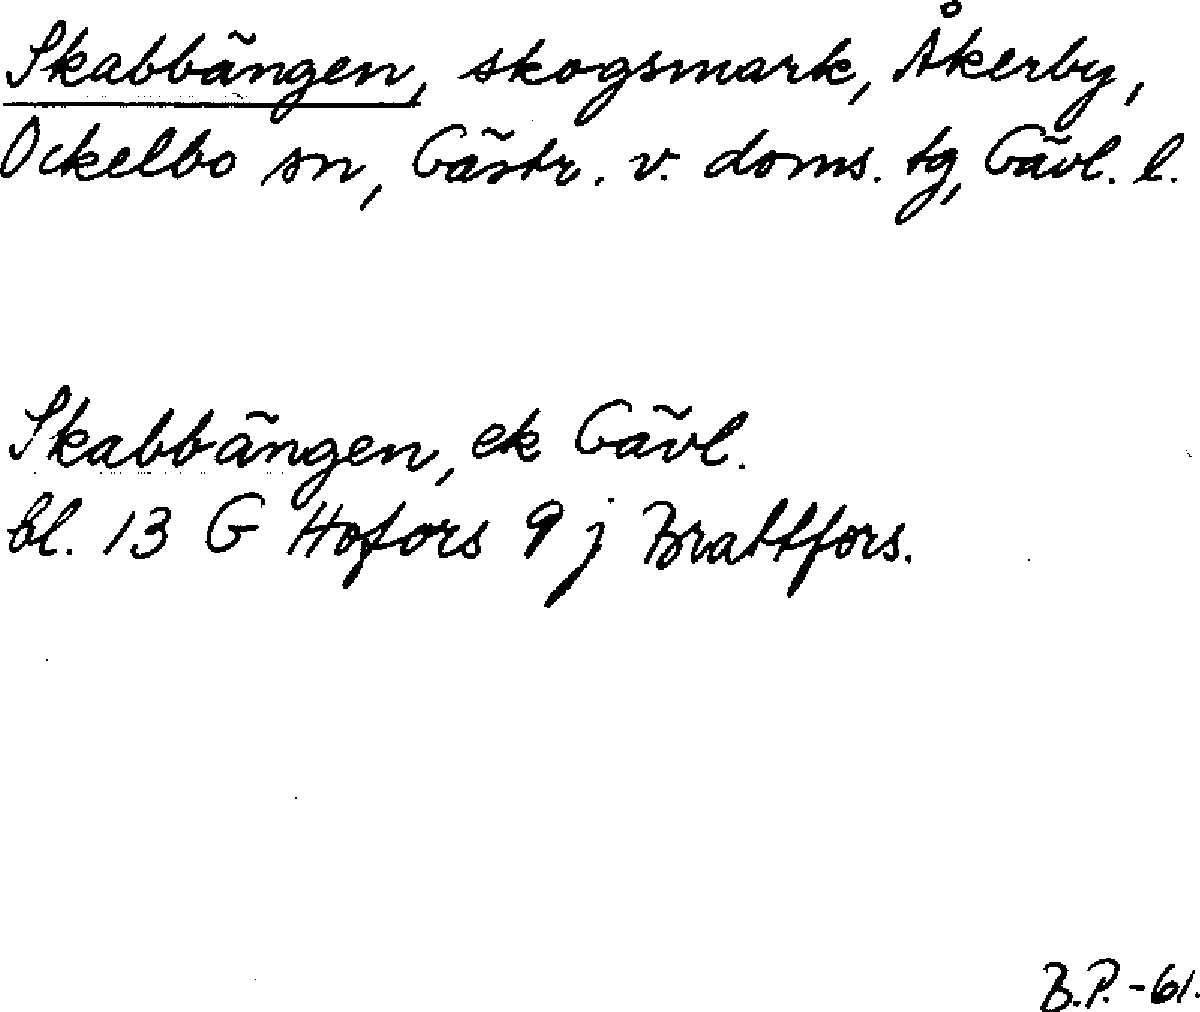 Skabbängen, skogsmark, Åkerby,
Ockelbo sn, Gästr. v. doms. tg, Gävl. l.
Skabbängen, ek Gävl.
bl. 13 G Hofors 9 j Brattfors.
B.P. -61.